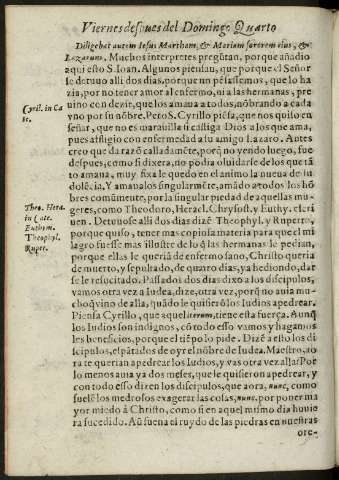 Viernes despues del Domingo Quarto
Diligebat autem Iesus Martham, & Mariam sororem eius, &
Lazarum. Muchos interpretes pregũtan, por que añadio
aqui esto S. Ioan. Algunos piensan, que porque el Señor
se detuuo alli dos dias, porque no pẽsassemos, que lo ha
zia, por no tener amor al enfermo, ni a las hermanas, pre
uino con dezir, que los amaua a todos, nõbrando a cada
vno por su nõbre. Pero S. Cyrillo piẽsa, que nos quiso en
señar, que no es marauilla si castiga Dios a los que ama,
pues afligio con enfermedad a su amigo Lazaro. Antes
creo que da razõ calladamẽte, porq̃ no yendo luego, fue
despues, como si dixera, no podia oluidarse de los que tã
to amaua, muy fixa le quedo en el animo la nueua de su
dolẽcia. Y amaualos singularmẽte, amãdo a todos los hõ
bres comũmente, por la singular piedad de aquellas mu-
geres, como Theodoro, Heracl. Chrysost. y Euthy. escri
uen. Detuuose alli dos dias dizẽ Theophyl. y Ruperto,
porque quiso, tener mas copiosa materia para que el mi
lagro fuesse mas illustre de lo q̃ las hermanas le pedian,
porque ellas le queriã de enfermo sano, Christo queria
de muerto, y sepultado, de quatro dias, ya hediondo, dar
se le resucitado. Passados dos dias dixo a los discipulos,
vamos otra vez a Iudea, dize, otra vez, porq̃ no auia mu-
cho q̃ vino de alla, quãdo le quisierõ los Iudios apedrear.
Piensa Cyrillo, que aquel iterum, tiene esta fuerça. Aunq̃
los Iudios son indignos, cõ todo esso vamos y hagamos
les beneficios, porque el tiẽpo lo pide. Dizẽ a esto los di
scipulos, espãtados de oyr el nõbre de Iudea. Maestro, ao
ra te querian apedrear los Iudios, y vas otra vez alla? Por
lo menos aura ya dos meses, que le quisieron apedrear, y
con todo esso dizen los discipulos, que aora, nunc, como
suelẽ los medrosos exagerar las cosas, nunc. por poner ma
yor miedo à Christo, como si en aquel mismo dia huuie
ra sucedido. Aũ suena el ruydo de las piedras en nuestras
ore-
Cyril. in Ca
te.
Theo. Hera.
in Cate.
Euthym.
Theophyl.
Ruper.